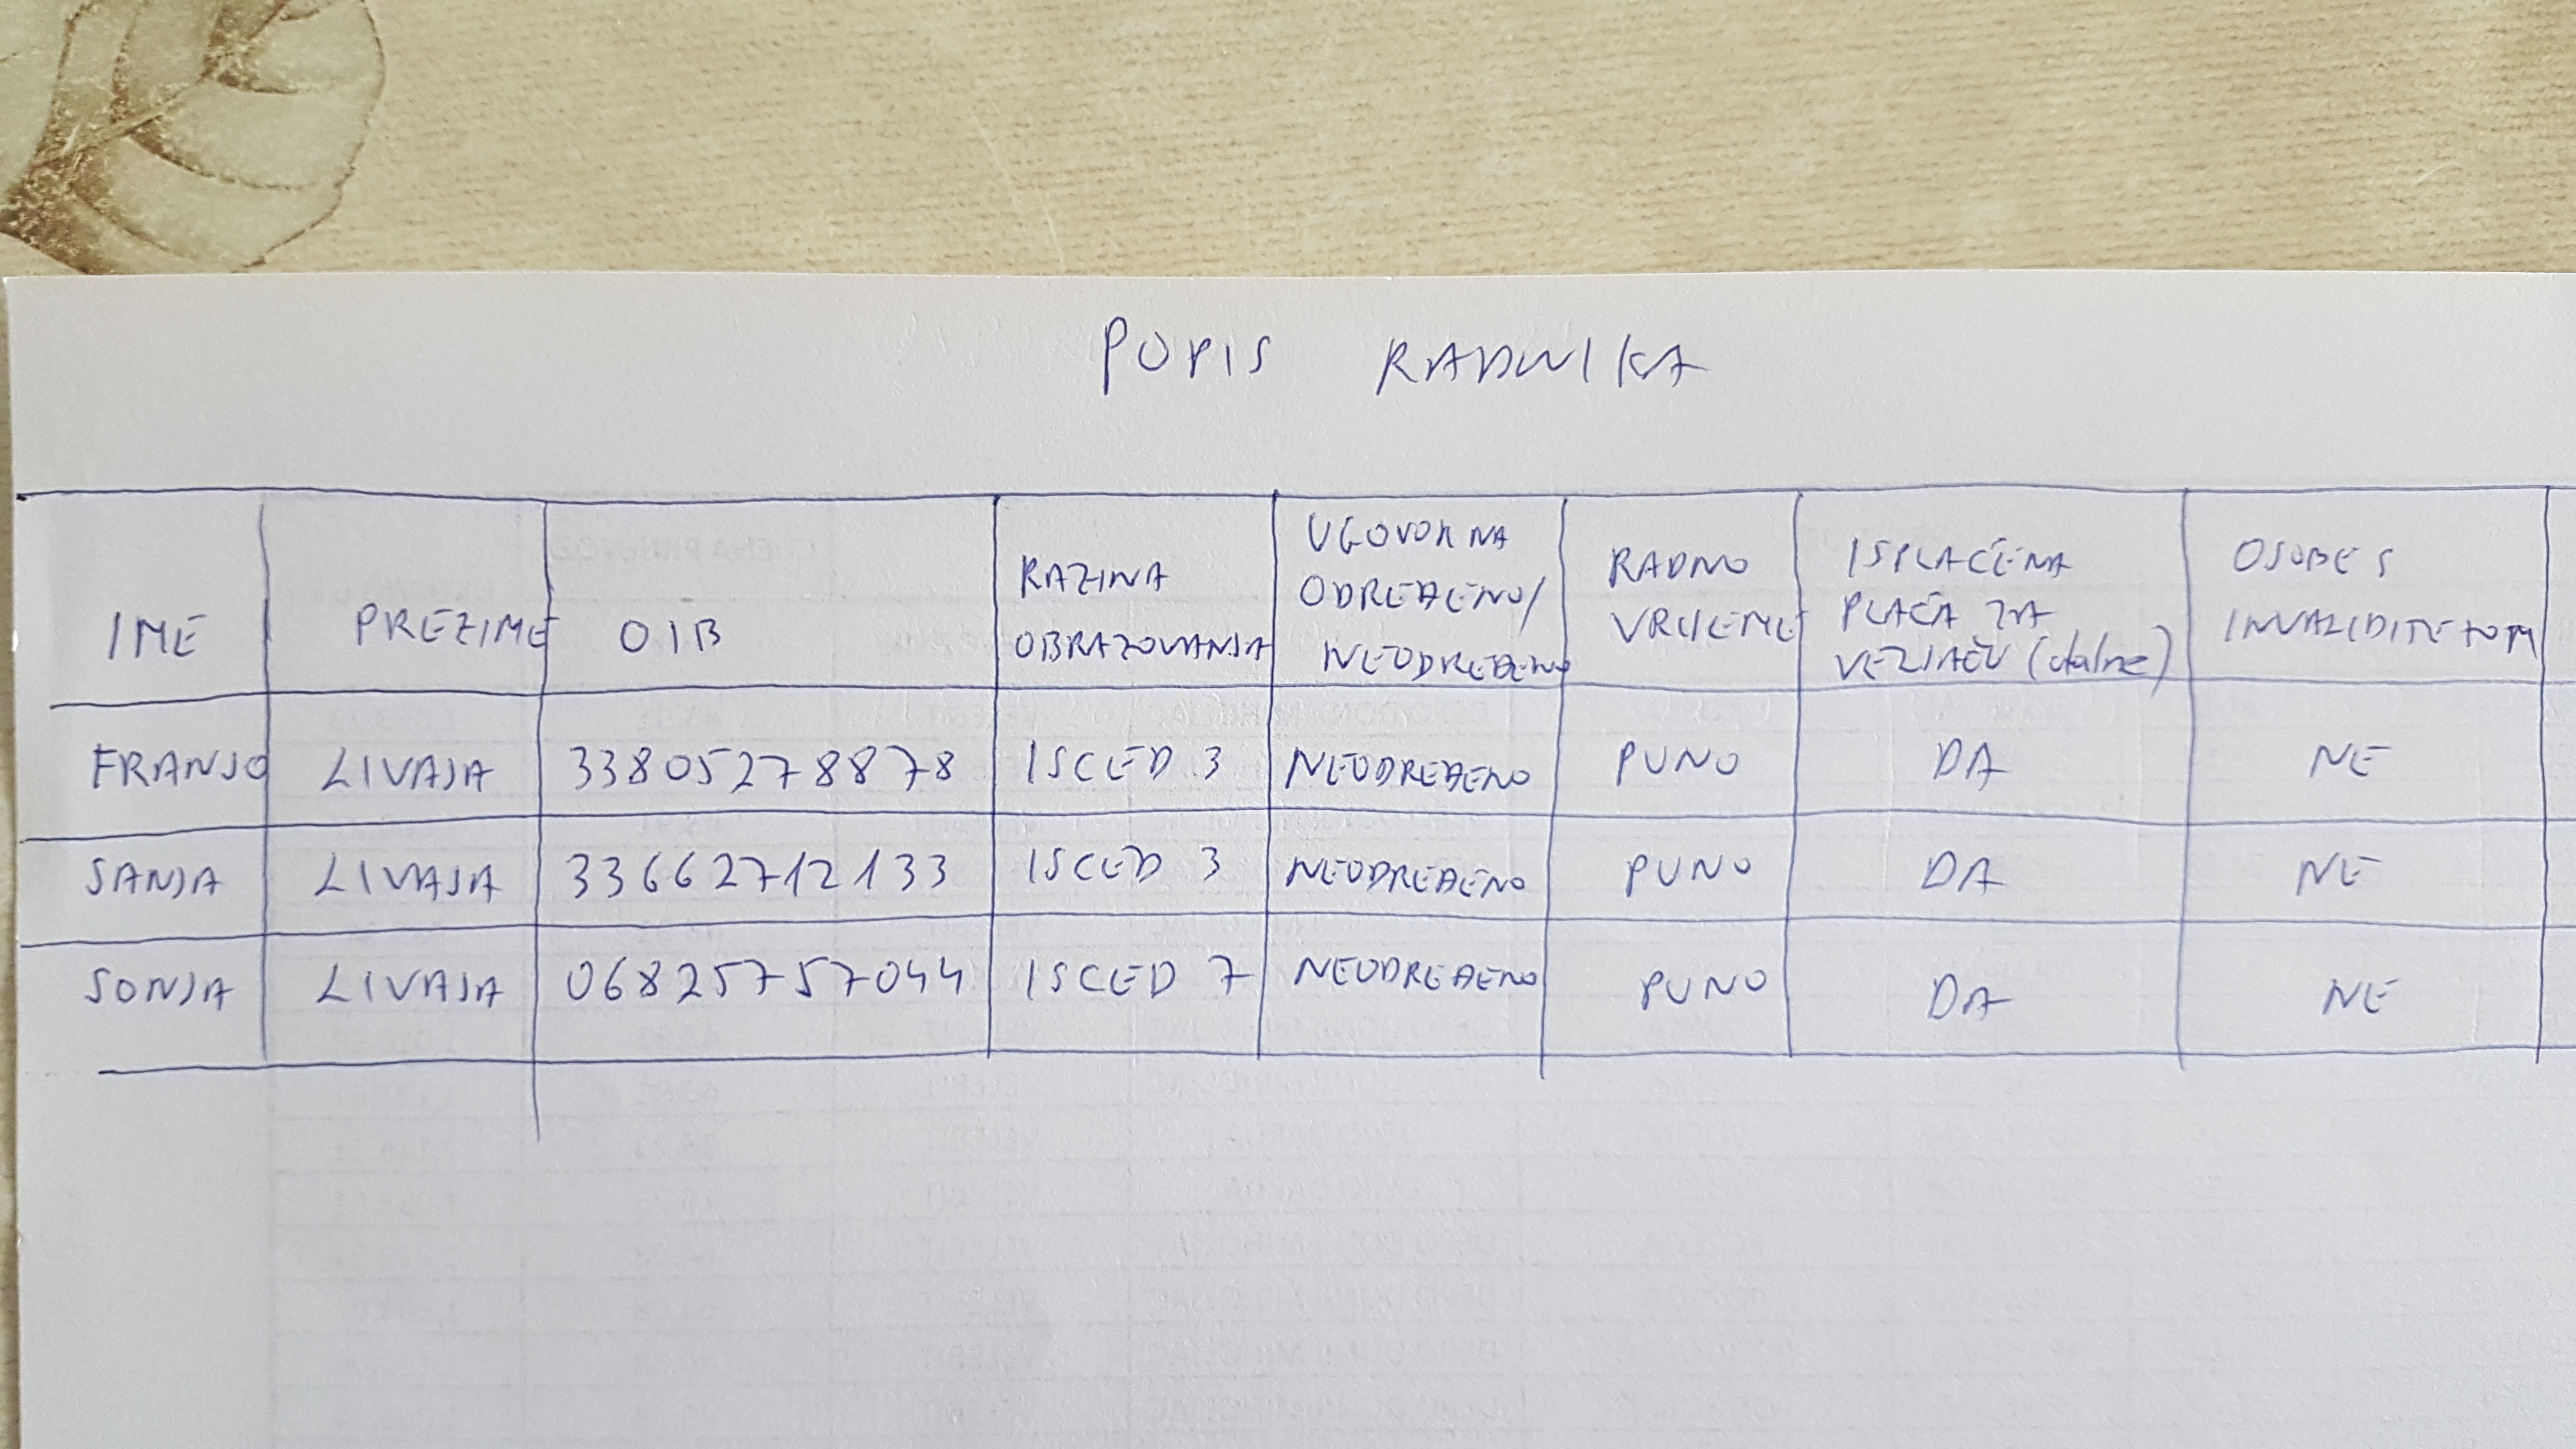 POPIS RADNIKA
IME PREZIME OIB RAZINA OBRAZOVANJA UGOVOR NA ODREĐENO/ NEODREĐENO RADNO VRIJEME ISPLAĆENA PLAĆA ZA VELJAČU OSOBE S INVALIDITETOM
FRANJO LIVAJA 33805278878 ISCED 3 NEODREĐENO PUNO DA NE
SANJA LIVAJA 33662712133 ISCED 3 NEODREĐENO PUNO DA NE
SONJA LIVAJA 06825757044 ISCED 7 NEODREĐENO PUNO DA NE